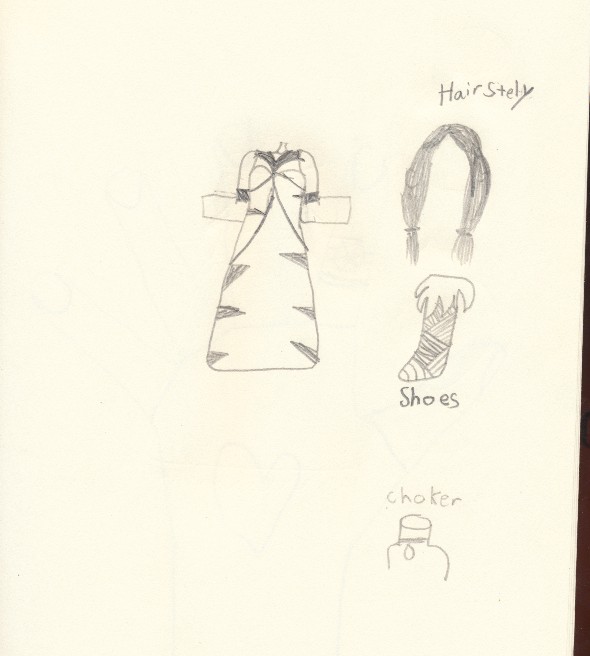 Hair Stely
Shoes
choker